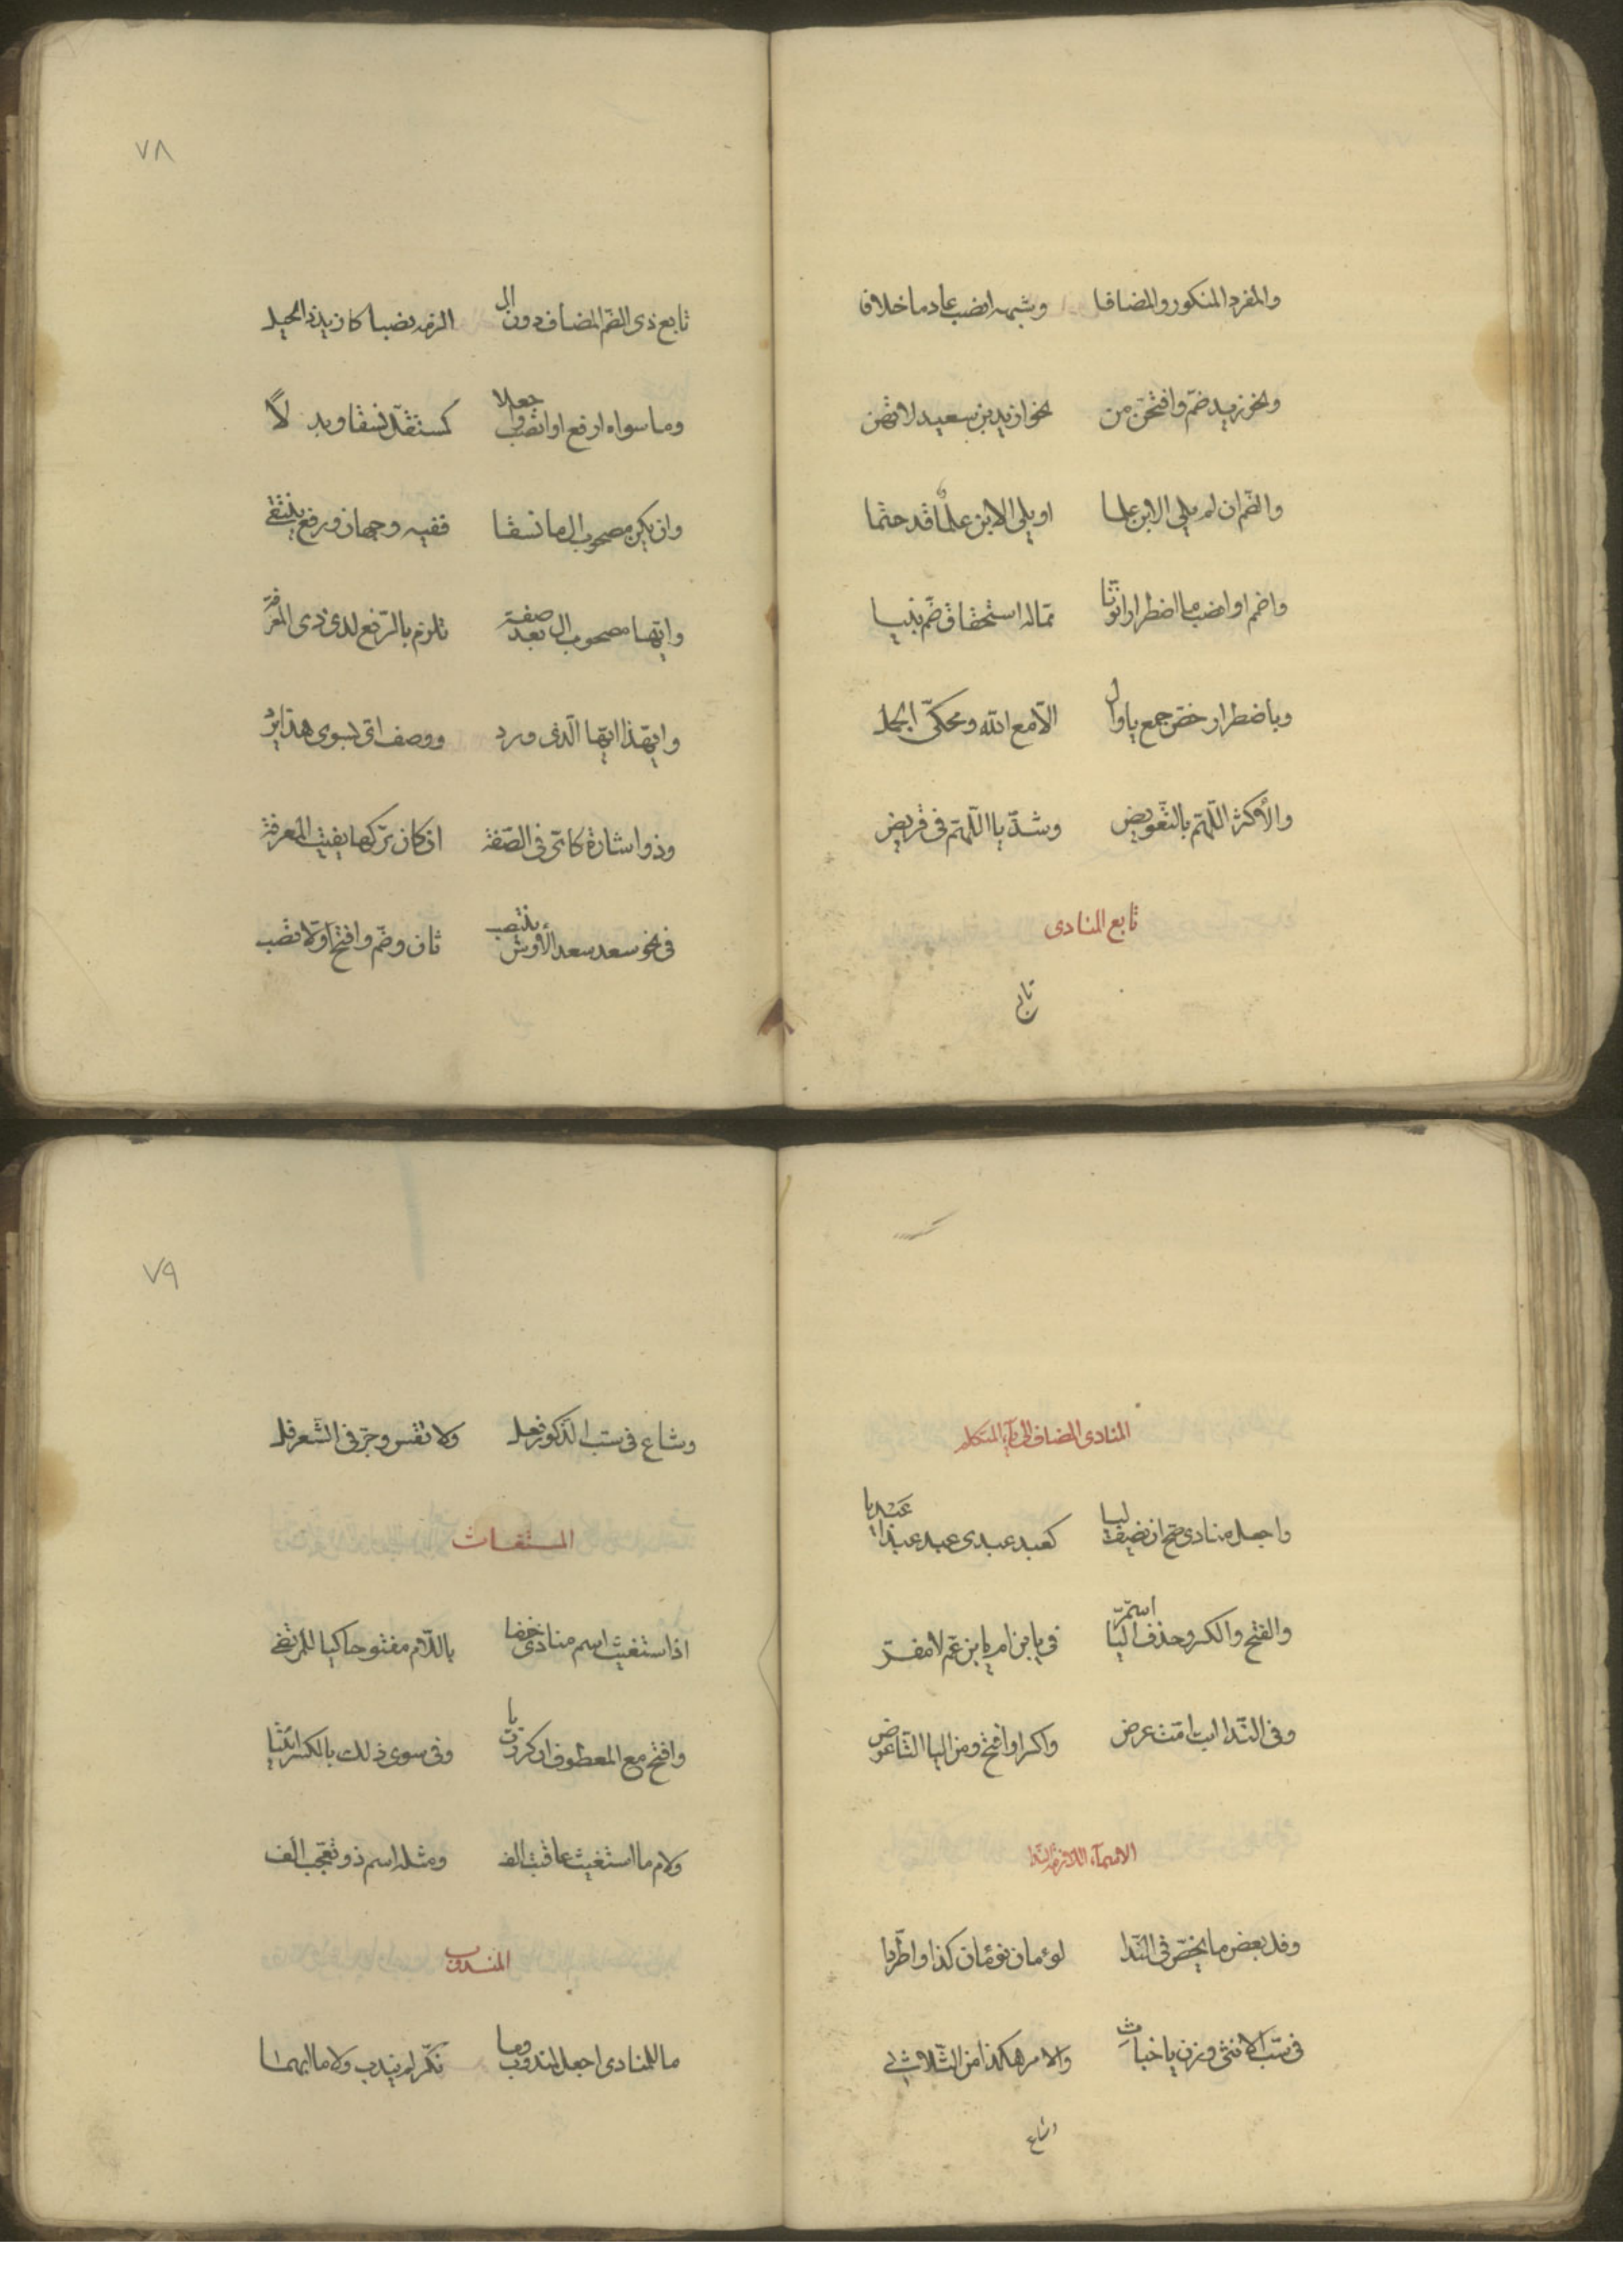 والمفرد المنكور والمضافا وشبهه انصب عادما خلافا
ونحو زيد ضم وافتحن من نحو ازيد بن سعيد لا تهن
والضم ان لم يلي الابن علما او يلي الابن علم قد حتما
واضمم او انصب ما اضطرارا نونا مما له استحقاق ضم بينا
وباضطرار خص جمع يا وال الا مع الله ومحكي الجمل
والأكثر اللهم بالتعويض وشذ يا اللهم في قريض
تابع المنادى
تابع
٧٨
تابع ذى الضم المضاف دون ال الزمه نصبا كازيد ذا الحيل
وما سواه ارفع او انصب واجعلا كمستقل نسقا وبدلا
وان يكن مصحوب ال ما نسقا ففيه وجهان ورفع ينتقى
وايها مصحوب ال بعد صفة تلزم بالرفع لدى ذى المعرفة
وايهذا ايها الذى ورد ووصف اى بسوى هذا يرد
وذو اشارة كاى فى الصفة ان كان تركها يفيت المعرفة
فى نحو سعد سعد الأوس ينتصب ثان وضم وافتح اولا تصب
المنادى المضاف الى ياء المتكلم
واجعل منادى صح ان يضف ليا كعبد عبدى عبد عبدا عبديا
والفتح والكسر وحذف اليا استمر فى يا ابن ام يا ابن عم لا مفر
وفى الندا ابت امت عرض واكسر او افتح ومن اليا التا عوض
الاسماء اللازمة الندا
وفل بعض ما يخص فى الندا لوءمان نومان كذا واطردا
فى سب الانثى وزن يا خباث والامر هكذا من الثلاثى
وشاع
٧٩
وشاع فى سب الذكور فعل ولا تقس وجر فى الشعر فل
المستغاث
اذا استغيث اسم منادى خفضا باللام مفتوحا كيا للمرتضى
وافتح مع المعطوف ان كررت يا وفى سوى ذلك بالكسر ائتيا
ولام ما استغيث عاقبت الف ومثله اسم ذو تعجب الف
المندوب
ما للمنادى اجعل لمندوب وما نكر لم يندب ولا ما ابهما